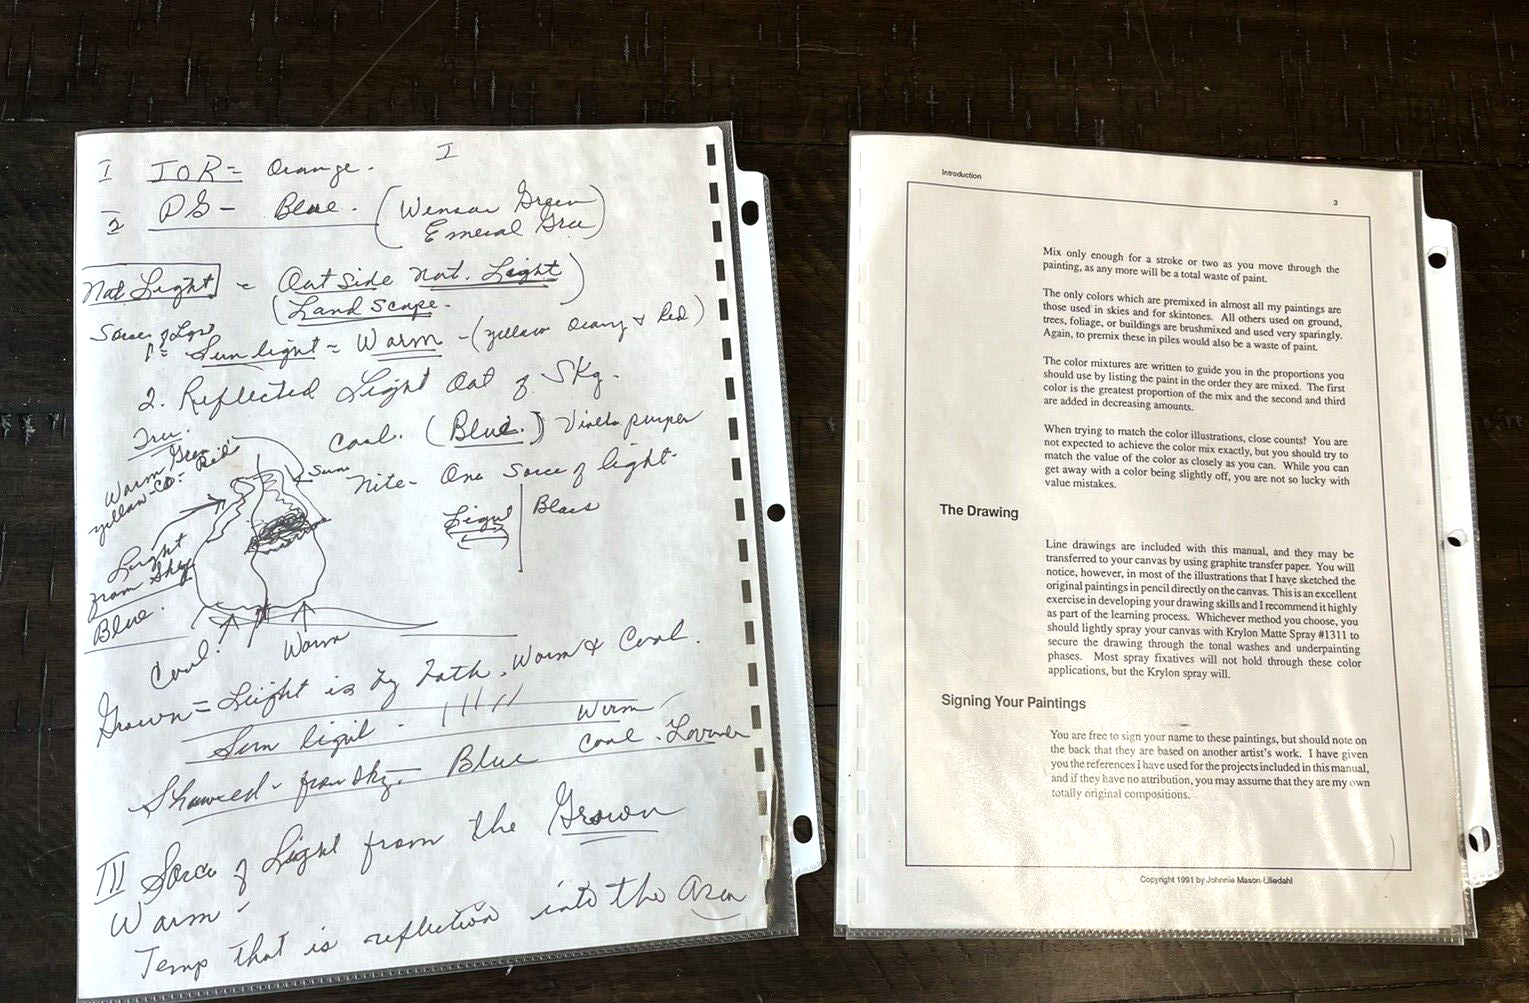 I
I IOR = Orange.
2 PG - Blue. (Wensor Green
Emeral Gree)
Nat Light = Outside Nat. Light)
(Land Scape.
Sorce of
1 = Sun light = Warm - (yellow Orang & Red)
2. Reflected Light Out of Sky.
Cool. (Blue.) purper
Tree.
Warm Gree
yellow-
Sun
Nite - One Sorce of light.
Light | Black
Light
from Sky
Blue.
Cool. Warm
Grown = Light is by Both. Warm & Cool.
Sun light - Warm
Shaweed - from sky. - Blue Cool. Lavender
III Sorce of Light from the Grown
Warm -
Temp that is reflection into the area
Introduction
3
Mix only enough for a stroke or two as you move through the
painting, as any more will be a total waste of paint.
The only colors which are premixed in almost all my paintings are
those used in skies and for skintones. All others used on ground,
trees, foliage, or buildings are brushmixed and used very sparingly.
Again, to premix these in piles would also be a waste of paint.
The color mixtures are written to guide you in the proportions you
should use by listing the paint in the order they are mixed. The first
color is the greatest proportion of the mix and the second and third
are added in decreasing amounts.
When trying to match the color illustrations, close counts! You are
not expected to achieve the color mix exactly, but you should try to
match the value of the color as closely as you can. While you can
get away with a color being slightly off, you are not so lucky with
value mistakes.
The Drawing
Line drawings are included with this manual, and they may be
transferred to your canvas by using graphite transfer paper. You will
notice, however, in most of the illustrations that I have sketched the
original paintings in pencil directly on the canvas. This is an excellent
exercise in developing your drawing skills and I recommend it highly
as part of the learning process. Whichever method you choose, you
should lightly spray your canvas with Krylon Matte Spray #1311 to
secure the drawing through the tonal washes and underpainting
phases. Most spray fixatives will not hold through these color
applications, but the Krylon spray will.
Signing Your Paintings
You are free to sign your name to these paintings, but should note on
the back that they are based on another artist's work. I have given
you the references I have used for the projects included in this manual,
and if they have no attribution, you may assume that they are my own
totally original compositions.
Copyright 1991 by Johnnie Mason-Liliedahl